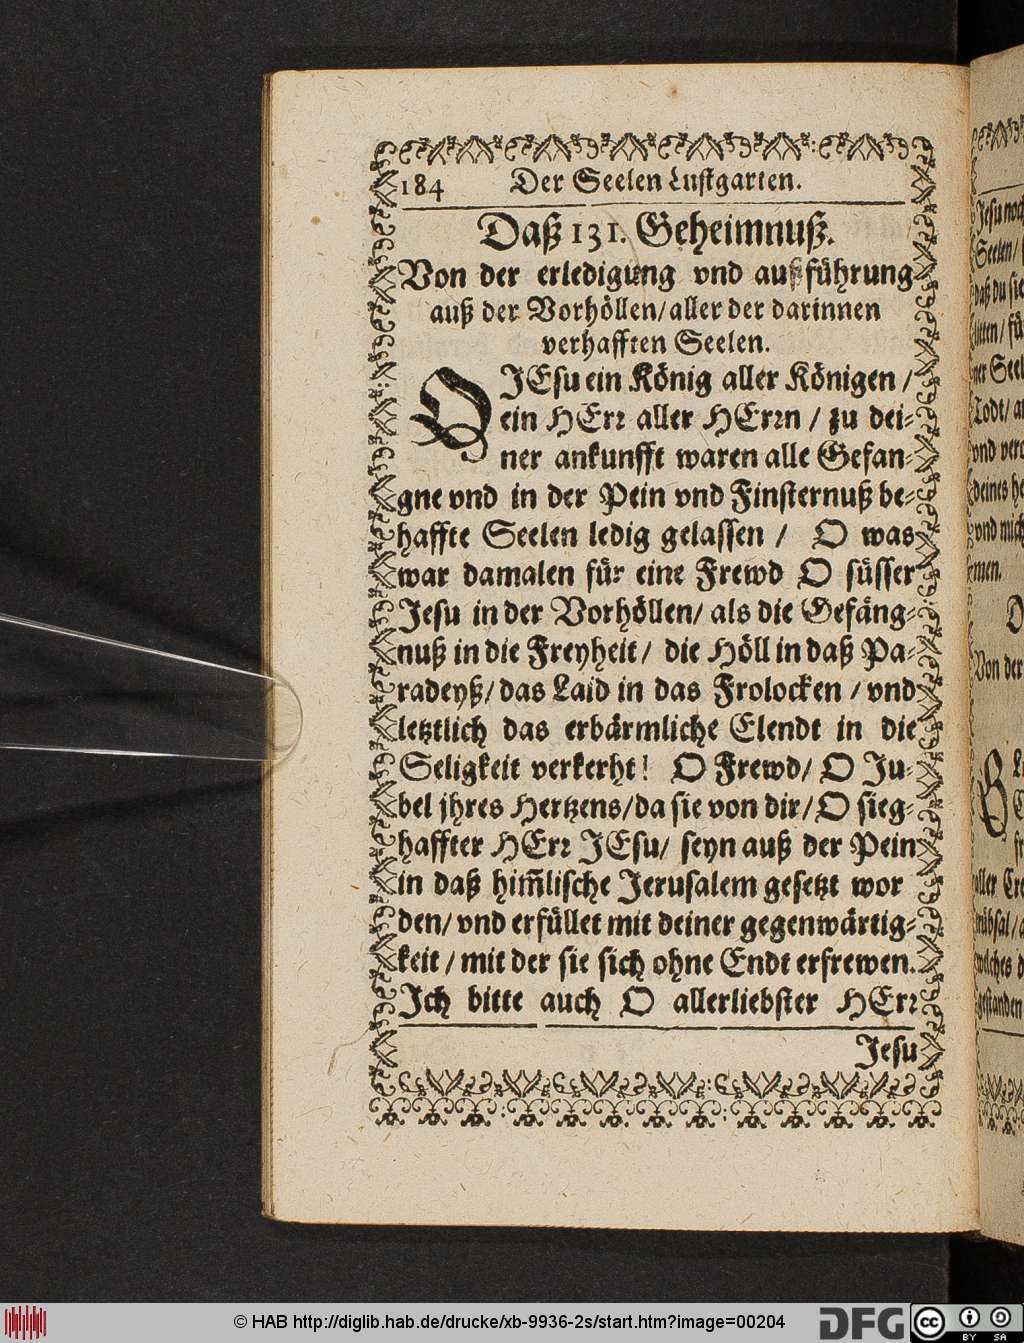 184 Der Seelen Lustgarten.
Daß 131. Geheimnuß.
Von der erledigung vnd außführung
auß der Vorhöllen/ aller der darinnen
verhafften Seelen.
O JEsu ein König aller Königen /
ein HErr aller HErrn / zu dei-
ner ankunfft waren alle Gefan-
gne vnd in der Pein vnd Finsternuß be-
haffte Seelen ledig gelassen / O was
war damalen für eine Frewd O süsser
Jesu in der Vorhöllen/ als die Gefäng-
nuß in die Freyheit / die Höll in daß Pa-
radeyß/ das Laid in das Frolocken / vnd
letztlich das erbärmliche Elendt in die
Seligkeit verkerht! O Frewd/ O Ju-
bel jhres Hertzens/ da sie von dir/ O sieg-
haffter HErr JEsu/ seyn auß der Pein
in daß him̃lische Jerusalem gesetzt wor
den/ vnd erfüllet mit deiner gegenwärtig-
keit / mit der sie sich ohne Endt erfrewen.
Ich bitte auch O allerliebster HErr
Jesu
Jesu noch
Seelen/
daß du sie
ner Seel
Todt/
deines he
vnd mich
men.
Von der
gestanden
© HAB http://diglib.hab.de/drucke/xb-9936-2s/start.htm?image=00204
DFG
cc
BY SA